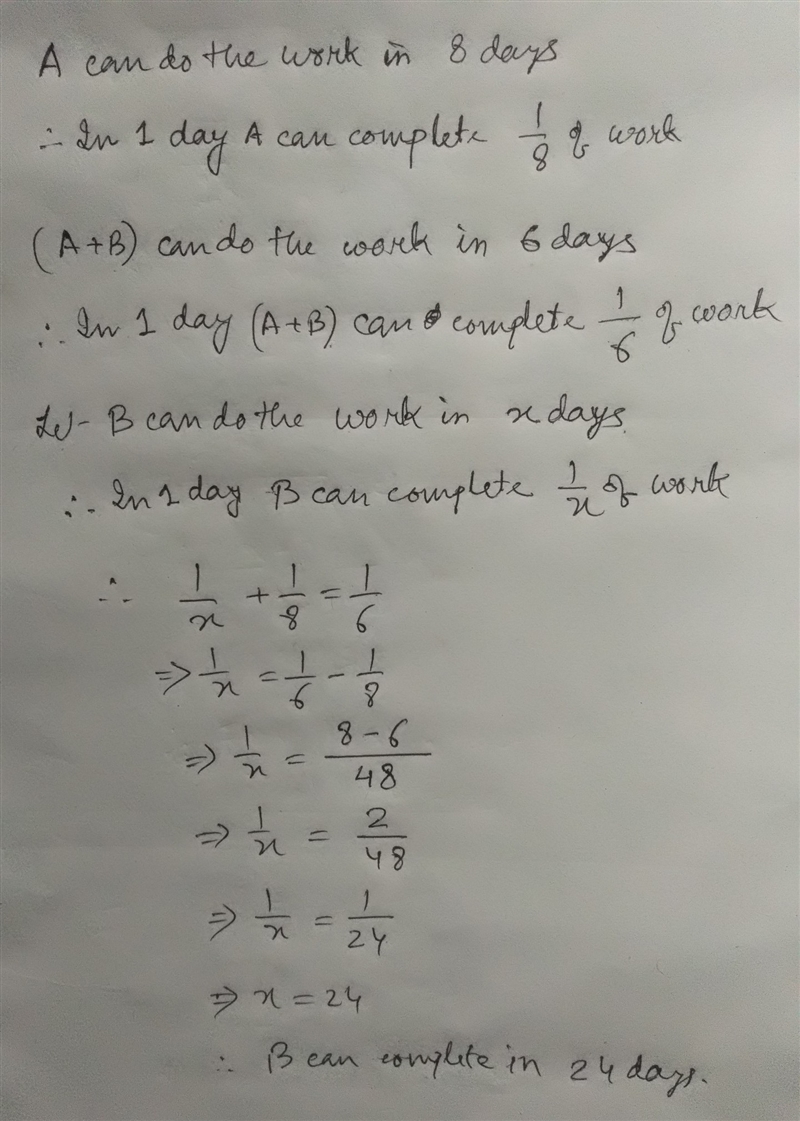 A can do the work in 8 days
∴ In 1 day A can complete 1/8 of work
(A+B) can do the work in 6 days
∴ In 1 day (A+B) can complete 1/6 of work
Let B can do the work in x days
∴ In 1 day B can complete 1/x of work
∴ 1/x + 1/8 = 1/6
⇒ 1/x = 1/6 - 1/8
⇒ 1/x = 8-6/48
⇒ 1/x = 2/48
⇒ 1/x = 1/24
⇒ x = 24
∴ B can complete in 24 days.